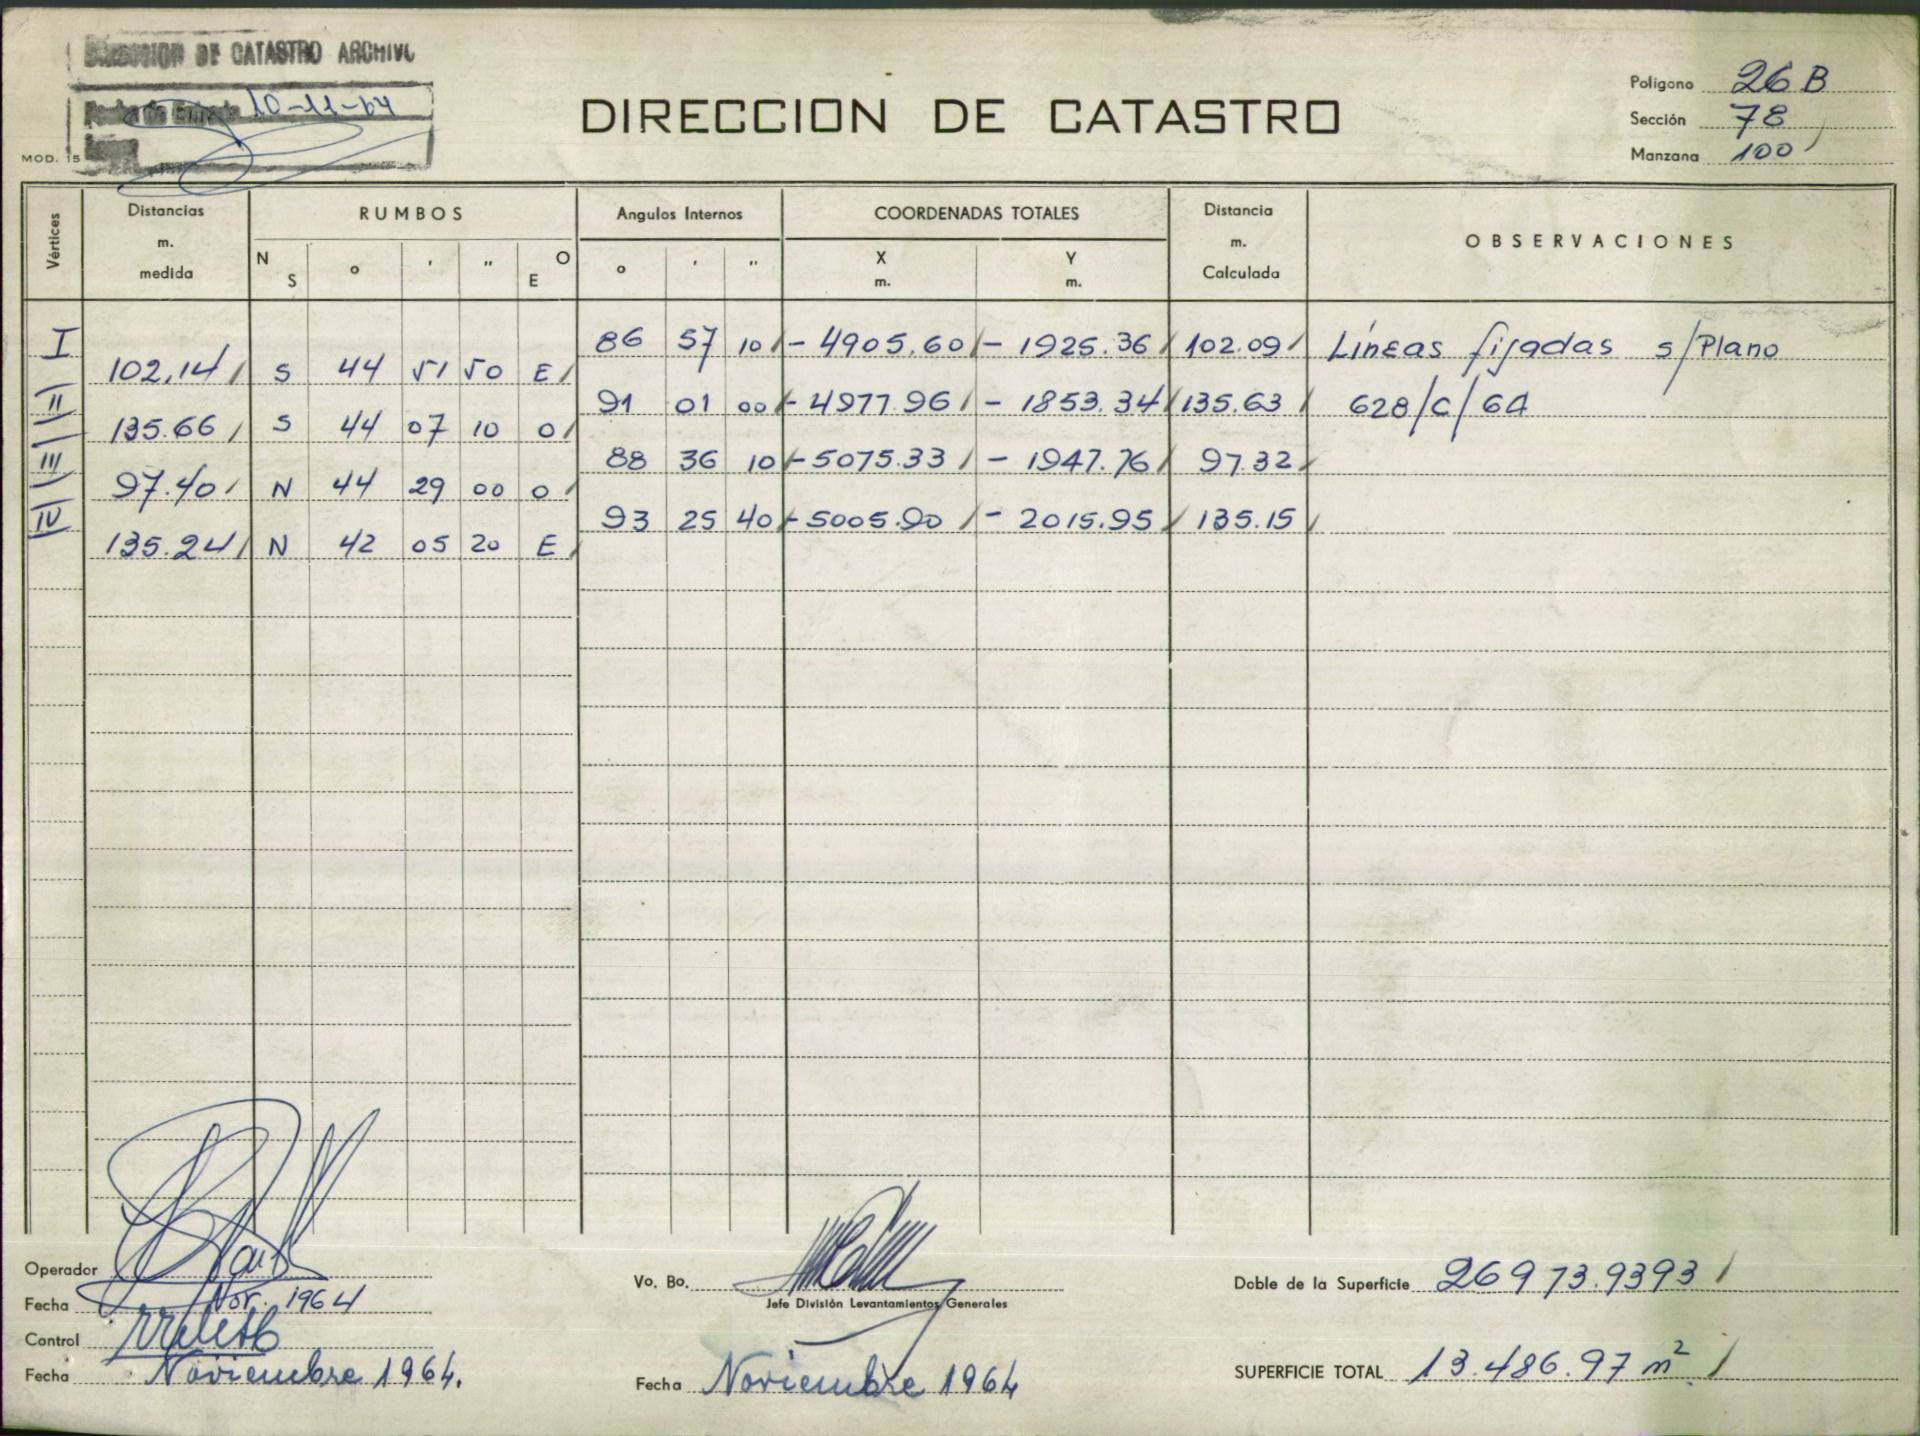 DIRECCION DE CATASTRO ARCHIVO
Fecha de Entrada 10-11-64
MOD. 15
DIRECCION DE CATASTRO
Polígono 26 B
Sección 78
Manzana 100
Vértices Distancias m. medida RUMBOS Angulos Internos COORDENADAS TOTALES Distancia m. Calculada OBSERVACIONES
N S o ' '' O E o ' '' X m. Y m.
I 86 57 10 - 4905.60 - 1925.36 102.09 Líneas fijadas s/Plano
102,14 S 44 51 50 E
II 91 01 00 - 4977.96 - 1853.34 135.63 628/C/64
135.66 S 44 07 10 O
III 88 36 10 - 5075.33 - 1947.76 97.32
97.40 N 44 29 00 O
IV 93 25 40 - 5005.90 - 2015.95 135.15
135.24 N 42 05 20 E
Operador
Fecha Nov. 1964
Control
Fecha Noviembre 1964.
Vo. Bo.
Jefe División Levantamientos Generales
Fecha Noviembre 1964
Doble de la Superficie 26973.9393
SUPERFICIE TOTAL 13.486.97 m²